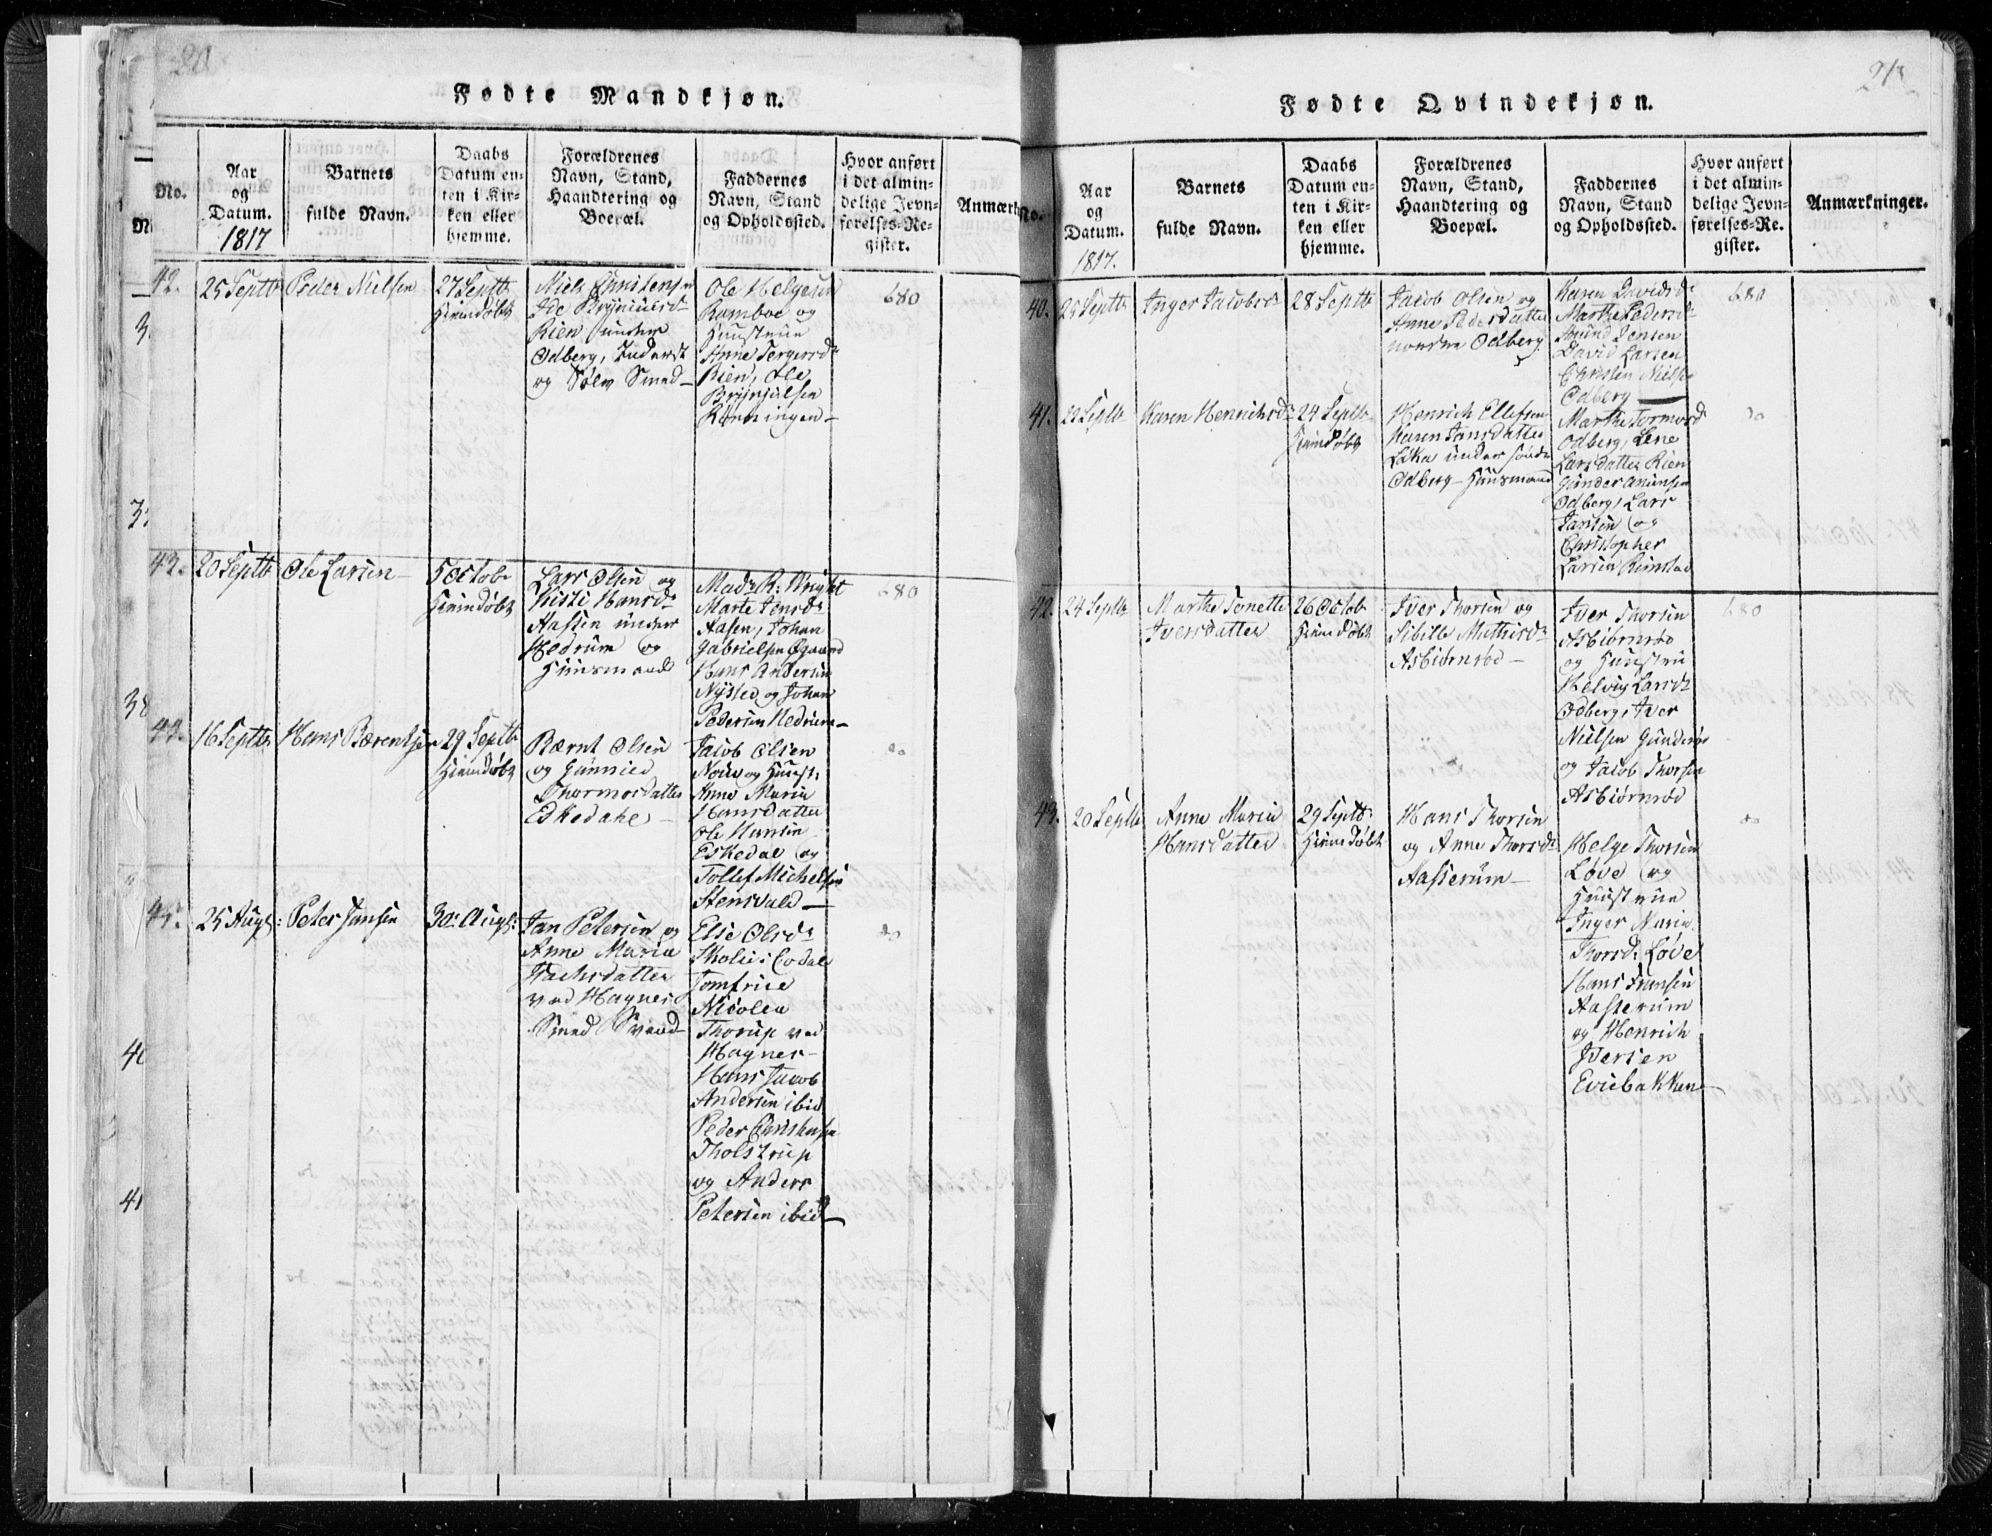 20
Fødte Mandkjøn.
No.
Aar
og
Datum.
1817
Barnets
fulde Navn.
Daabs
Datum en-
ten i Kir-
ken eller
hjemme.
Forældrenes
Navn, Stand,
Haandtering og
Boepæl.
Faddernes
Navn, Stand
og Opholdssted.
Hvor anført
i det almin-
delige Jevn-
førelses-Re-
gister.
Anmærk
42.
25 Septb
Peder Nielsen
27 Septb
Hiemdøbt
Niels Christensen
Rien under
Odberg, Inderst
og Sølv Smed
Ole Helgesen
Ramboe og
Huustrue
Anne
Rien, Ole
Brynjulsen
Rønningen
680
43.
20 Septb
Ole Larsen
5 Octob
Hiemdøbt
Lars Olsen og
Kisti Hansdr
Aassen under
Hedrum og
Huusmand
Madr R: Wright
Marte Jensdr
Aasen, Johan
Gabrielsen
Hans Andersen
Nysled og Johan
Pedersen Hedrum
680
44.
16 Septb
Hans Bærentsen
29 Septb
Hiemdøbt
Bærnt Olsen
og Gunnild
Thormosdatter
Eskedahl
Jacob Olsen
og Huust:
Anne Maria
Hansdatter
Ole Hansen
Eskedal og
Tollef Michelsen
do
45.
25 Augt:
Peter Jansen
30 Augt:
Jan Petersen og
Anne Maria
Isachsdatter
ved Hagnes
Smed Svend
Else Olsdr
Jomfrue
Nicolea
Thorup ved
Hagnes
Hans Jacob
Andersen ibid
Peder Christensen
Tholstrup
og Anders
Petersen ibid
do
21
Fødte Qvindekjøn.
No.
Aar
og
Datum.
1817.
Barnets
fulde Navn.
Daabs
Datum en-
ten i Kir-
ken eller
hjemme.
Forældrenes
Navn, Stand,
Haandtering og
Boepæl.
Faddernes
Navn, Stand
og Opholdssted.
Hvor anført
i det almin-
delige Jevn-
førelses-Re-
gister.
Anmærkninger.
40.
25 Septb
Inger Jacobsdr
28 Septb
Jacob Olsen og
Anne Pedersdatter
nordre Odberg
Karen Davidsdr
Marthe Pedersdr
Amund Jensen
David Larsen
Christen Nielsen
Odberg
680
41.
22 Septb
Karen Henrichsdr
24 Septb
Hiemdøbt
Henrich Ellefsen
Karen Jansdatter
Løka under søndre
Odberg Huusmand
Marthe Tormosdr
Odberg, Lene
Larsdatter Rien
Gunder Amunsen
Odberg, Lars
Jansen og
Christopher
Larsen Rimstad
do
42.
24 Septb
Marthe Tonette
Iversdatter
26 Octob
Hiemdøbt
Iver Thorsen og
Sibille Mathisdr
Asbiørnrød
Iver Thorsen
Asbiørnrød
og Huustru
Helvig Larsdr
Odberg, Iver
Nielsen Gunderød
og Jacob Thorsen
Asbiørnrød
680
43.
20 Septb
Anne Maria
Hansdatter
29 Septb:
Hiemdøbt
Hans Thorsen
og Anne Thorsdr
Aasserum
Helge Thorsen
Løve og
Huustrue
Inger Maria
Thorsdr: Løve
Hans Fransen
Aasserum
og Henrich
Iversen
Eviebakken
do